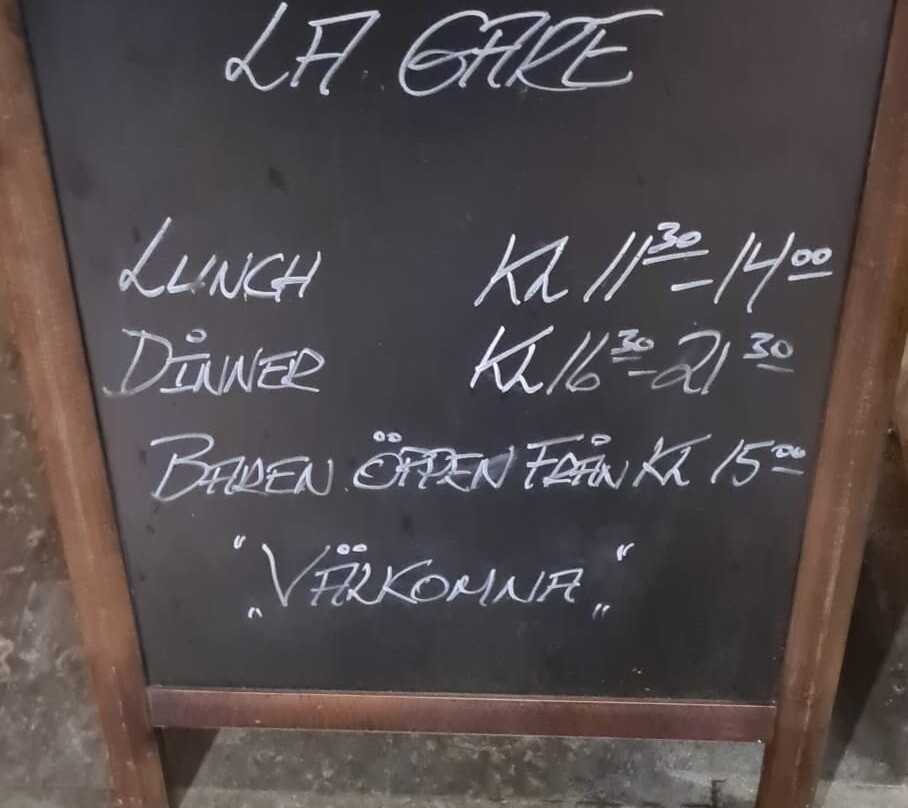 LA GARE
LUNCH KL 11³⁰-14⁰⁰
DINNER KL 16³⁰-21³⁰
BAREN ÖPPEN FRÅN KL 15⁰⁰
"VÄLKOMNA"